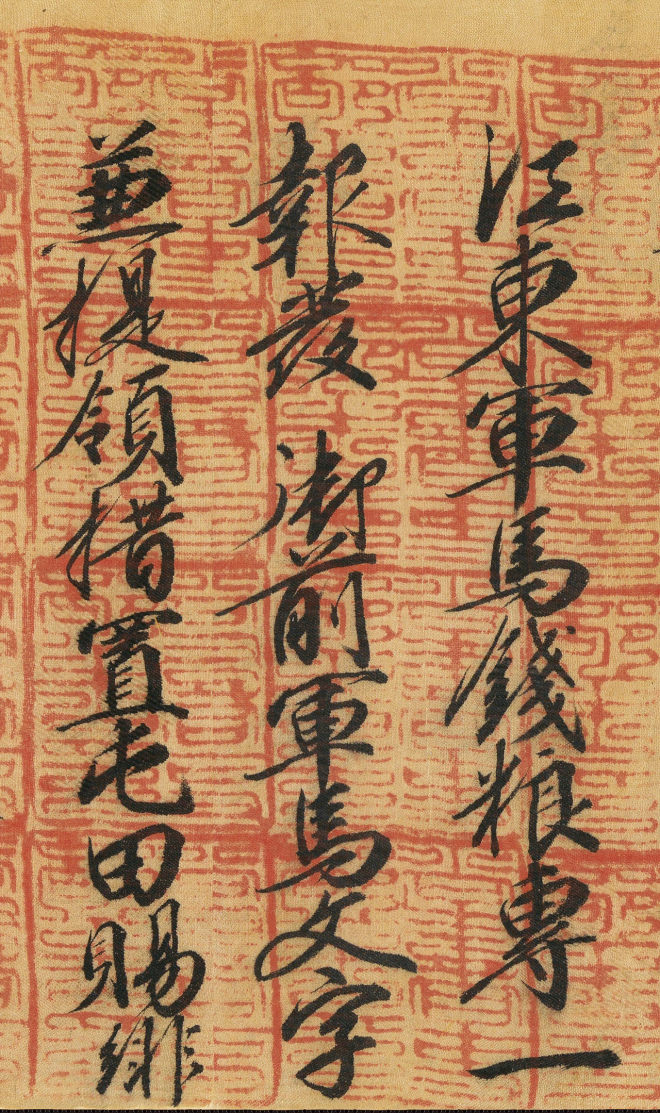 江東軍馬錢粮專一
報發 御前軍馬文字
兼提領措置屯田賜緋